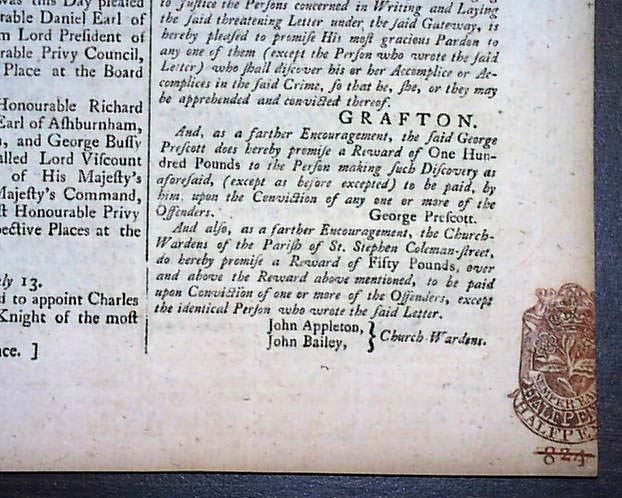 was this Day pleased
rable Daniel Earl of
m Lord President of
rable Privy Council,
Place at the Board
Honourable Richard
Earl of Aſhburnham,
, and George Buſſy
alled Lord Viſcount
of His Majeſty's
Majeſty's Command,
ſt Honourable Privy
pective Places at the
ly 13.
d to appoint Charles
Knight of the moſt
ce. ]
to Juſtice the Perſons concerned in Writing and Laying
the ſaid threatening Letter under the ſaid Gateway, is
hereby pleaſed to promiſe His moſt gracious Pardon to
any one of them (except the Perſon who wrote the ſaid
Letter) who ſhall diſcover his or her Accomplice or Ac-
complices in the ſaid Crime, ſo that he, ſhe, or they may
be apprehended and convicted thereof.
GRAFTON.
And, as a farther Encouragement, the ſaid George
Preſcott does hereby promiſe a Reward of One Hun-
dred Pounds to the Perſon making ſuch Diſcovery as
aforeſaid, (except as before excepted) to be paid, by
him, upon the Conviction of any one or more of the
Offenders.
George Preſcott.
And alſo, as a farther Encouragement, the Church-
Wardens of the Pariſh of St. Stephen Coleman-ſtreet,
do hereby promiſe a Reward of Fifty Pounds, over
and above the Reward above mentioned, to be paid
upon Conviction of one or more of the Offenders, except
the identical Perſon who wrote the ſaid Letter.
John Appleton,
John Bailey,
Church-Wardens.
SEMPER EA
HALFPEN
HALFPE
824